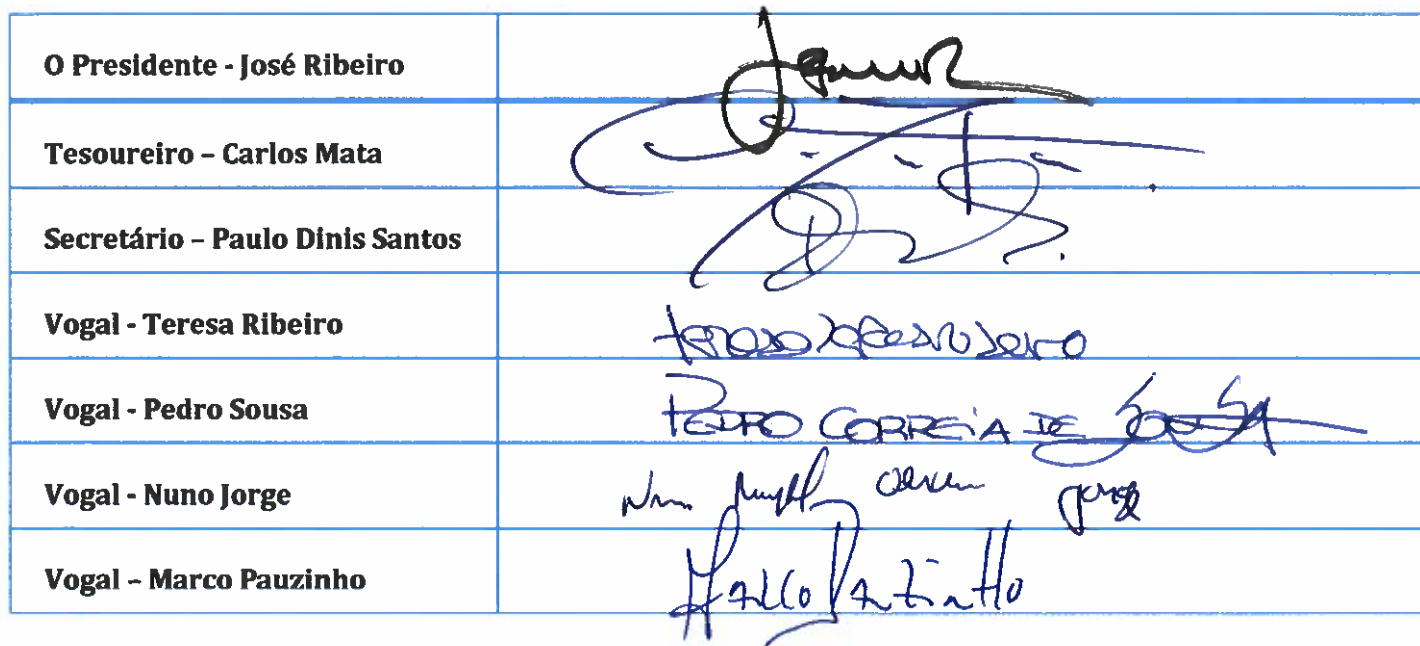 O Presidente - José Ribeiro
Tesoureiro – Carlos Mata
Secretário – Paulo Dinis Santos
Vogal - Teresa Ribeiro
Vogal - Pedro Sousa PEDRO CORREIA DE SOUSA
Vogal - Nuno Jorge
Vogal – Marco Pauzinho Marco Pauzinho